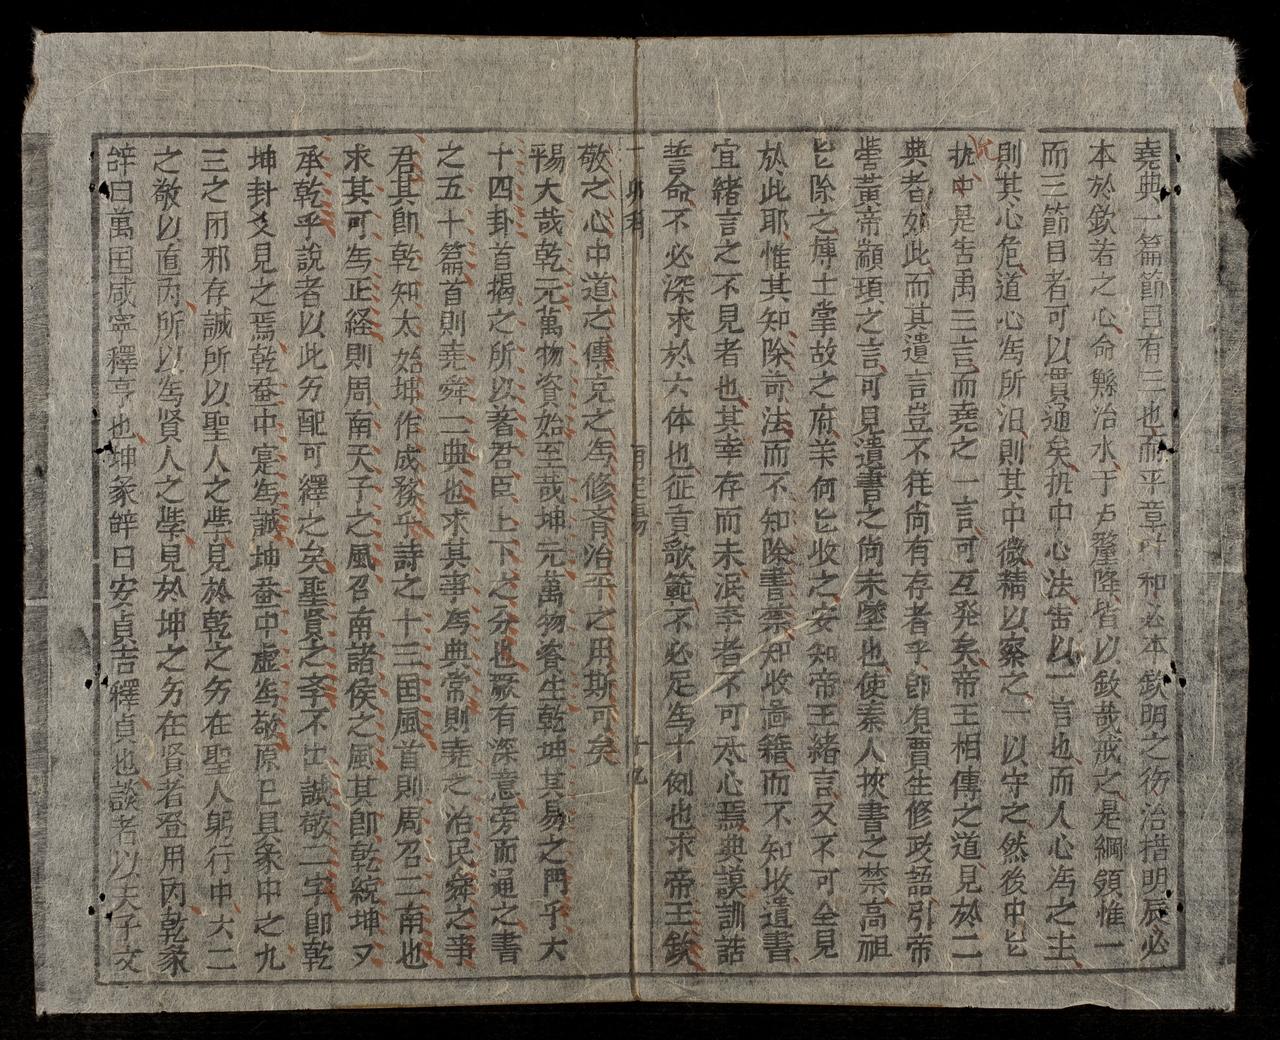 堯典一篇節目有三也而平章叶和必本欽明之彷治措明辰必
本於欽若之心命縣治水于与釐降皆以欽哉戒之是綱領惟一
而三節目者可以貫通矣执中心法吿以一言也而人心為之主
則其心危道心為所汩則其中微精以察之一以守之然後中㠯
执中是吿禹三言而堯之一言可互発矣帝王相傳之道見於二
典者如此而其遺言豈不徃尚有存者乎卽㒵賈生修政語引帝
嚳黃帝顓頊之言可見遺書之尚未墜也使秦人挾書之禁高祖
㠯除之博士掌故之府羊何㠯收之安知帝王緒言又不可全見
於此耶惟其知除苛法而不知除書禁知收啚籍而不知收遺書
宜緒言之不見者也其幸存而未泯李者不可太心焉典謨訓誥
誓命不必深求於六体也征貢歌範不必足為十例也求帝王欽
敬之心中道之傳克之為修齐治平之用斯可矣
昜大哉乾元萬物資始至哉坤元萬物資生乾坤其易之門乎大
十四卦首揭之所以著君臣上下之分也聚有深意旁而通之書
之五十篇首則堯舜二典也求其事為典常則堯之治民舜之事
君其卽乾知太始坤作成務乎詩之十三囯風首則周召二南也
求其可為正経則周南天子之風召南諸侯之風其卽乾統坤又
承乾乎說者以此分配可繹之矣聖賢之李不出誠敬二字卽乾
坤卦爻見之焉乾畨中寔為誠坤畨中虛為敬原已具象中之九
三之闭邪存誠所以聖人之孝見於乾之分在聖人躬行中六二
之敬以直內所以為贤人之孝見於坤之分在賢者登用內乾彖
辝曰萬囯咸寧釋亨也坤彖辝曰安貞吉釋貞也談者以夫子文